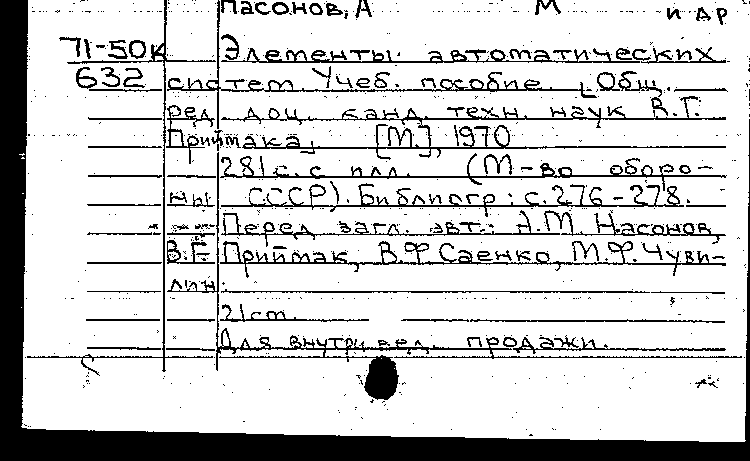 Насонов, А М и др
71-50к Элементы автоматических
632 систем. Учеб. пособие. [Общ.
ред. доц. канд. техн. наук В.Г.
Приймака] [М.], 1970
281 с. с илл. (М-во оборо-
ны СССР). Библиогр: с. 276-278.
Перед загл. авт.: А.М. Насонов,
В.Г. Приймак, В.Ф Саенко, М.Ф. Чуви-
лин.
21 cm.
Для внутривед. продажи.